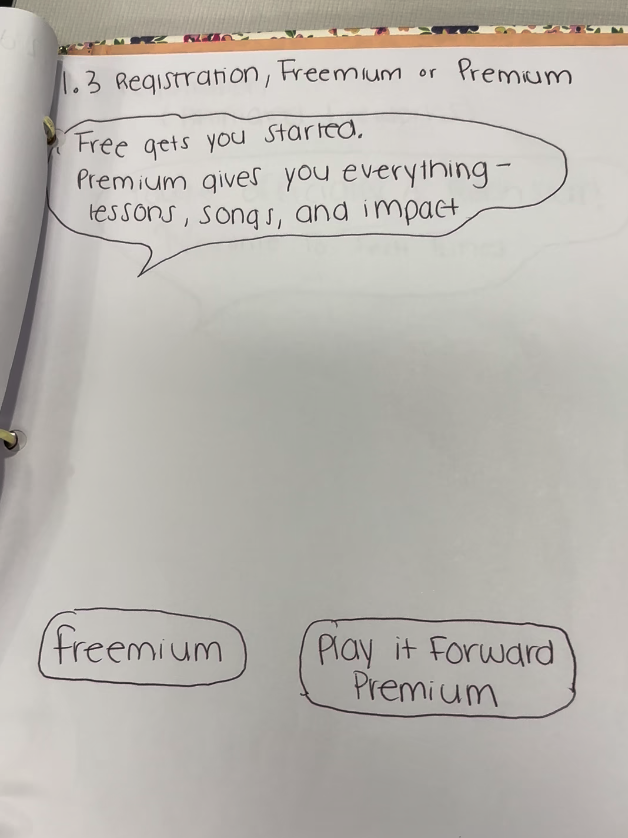 1.3 Registration, Freemium or Premium
Free gets you started.
Premium gives you everything-
lessons, songs, and impact
freemium
Play it Forward
Premium